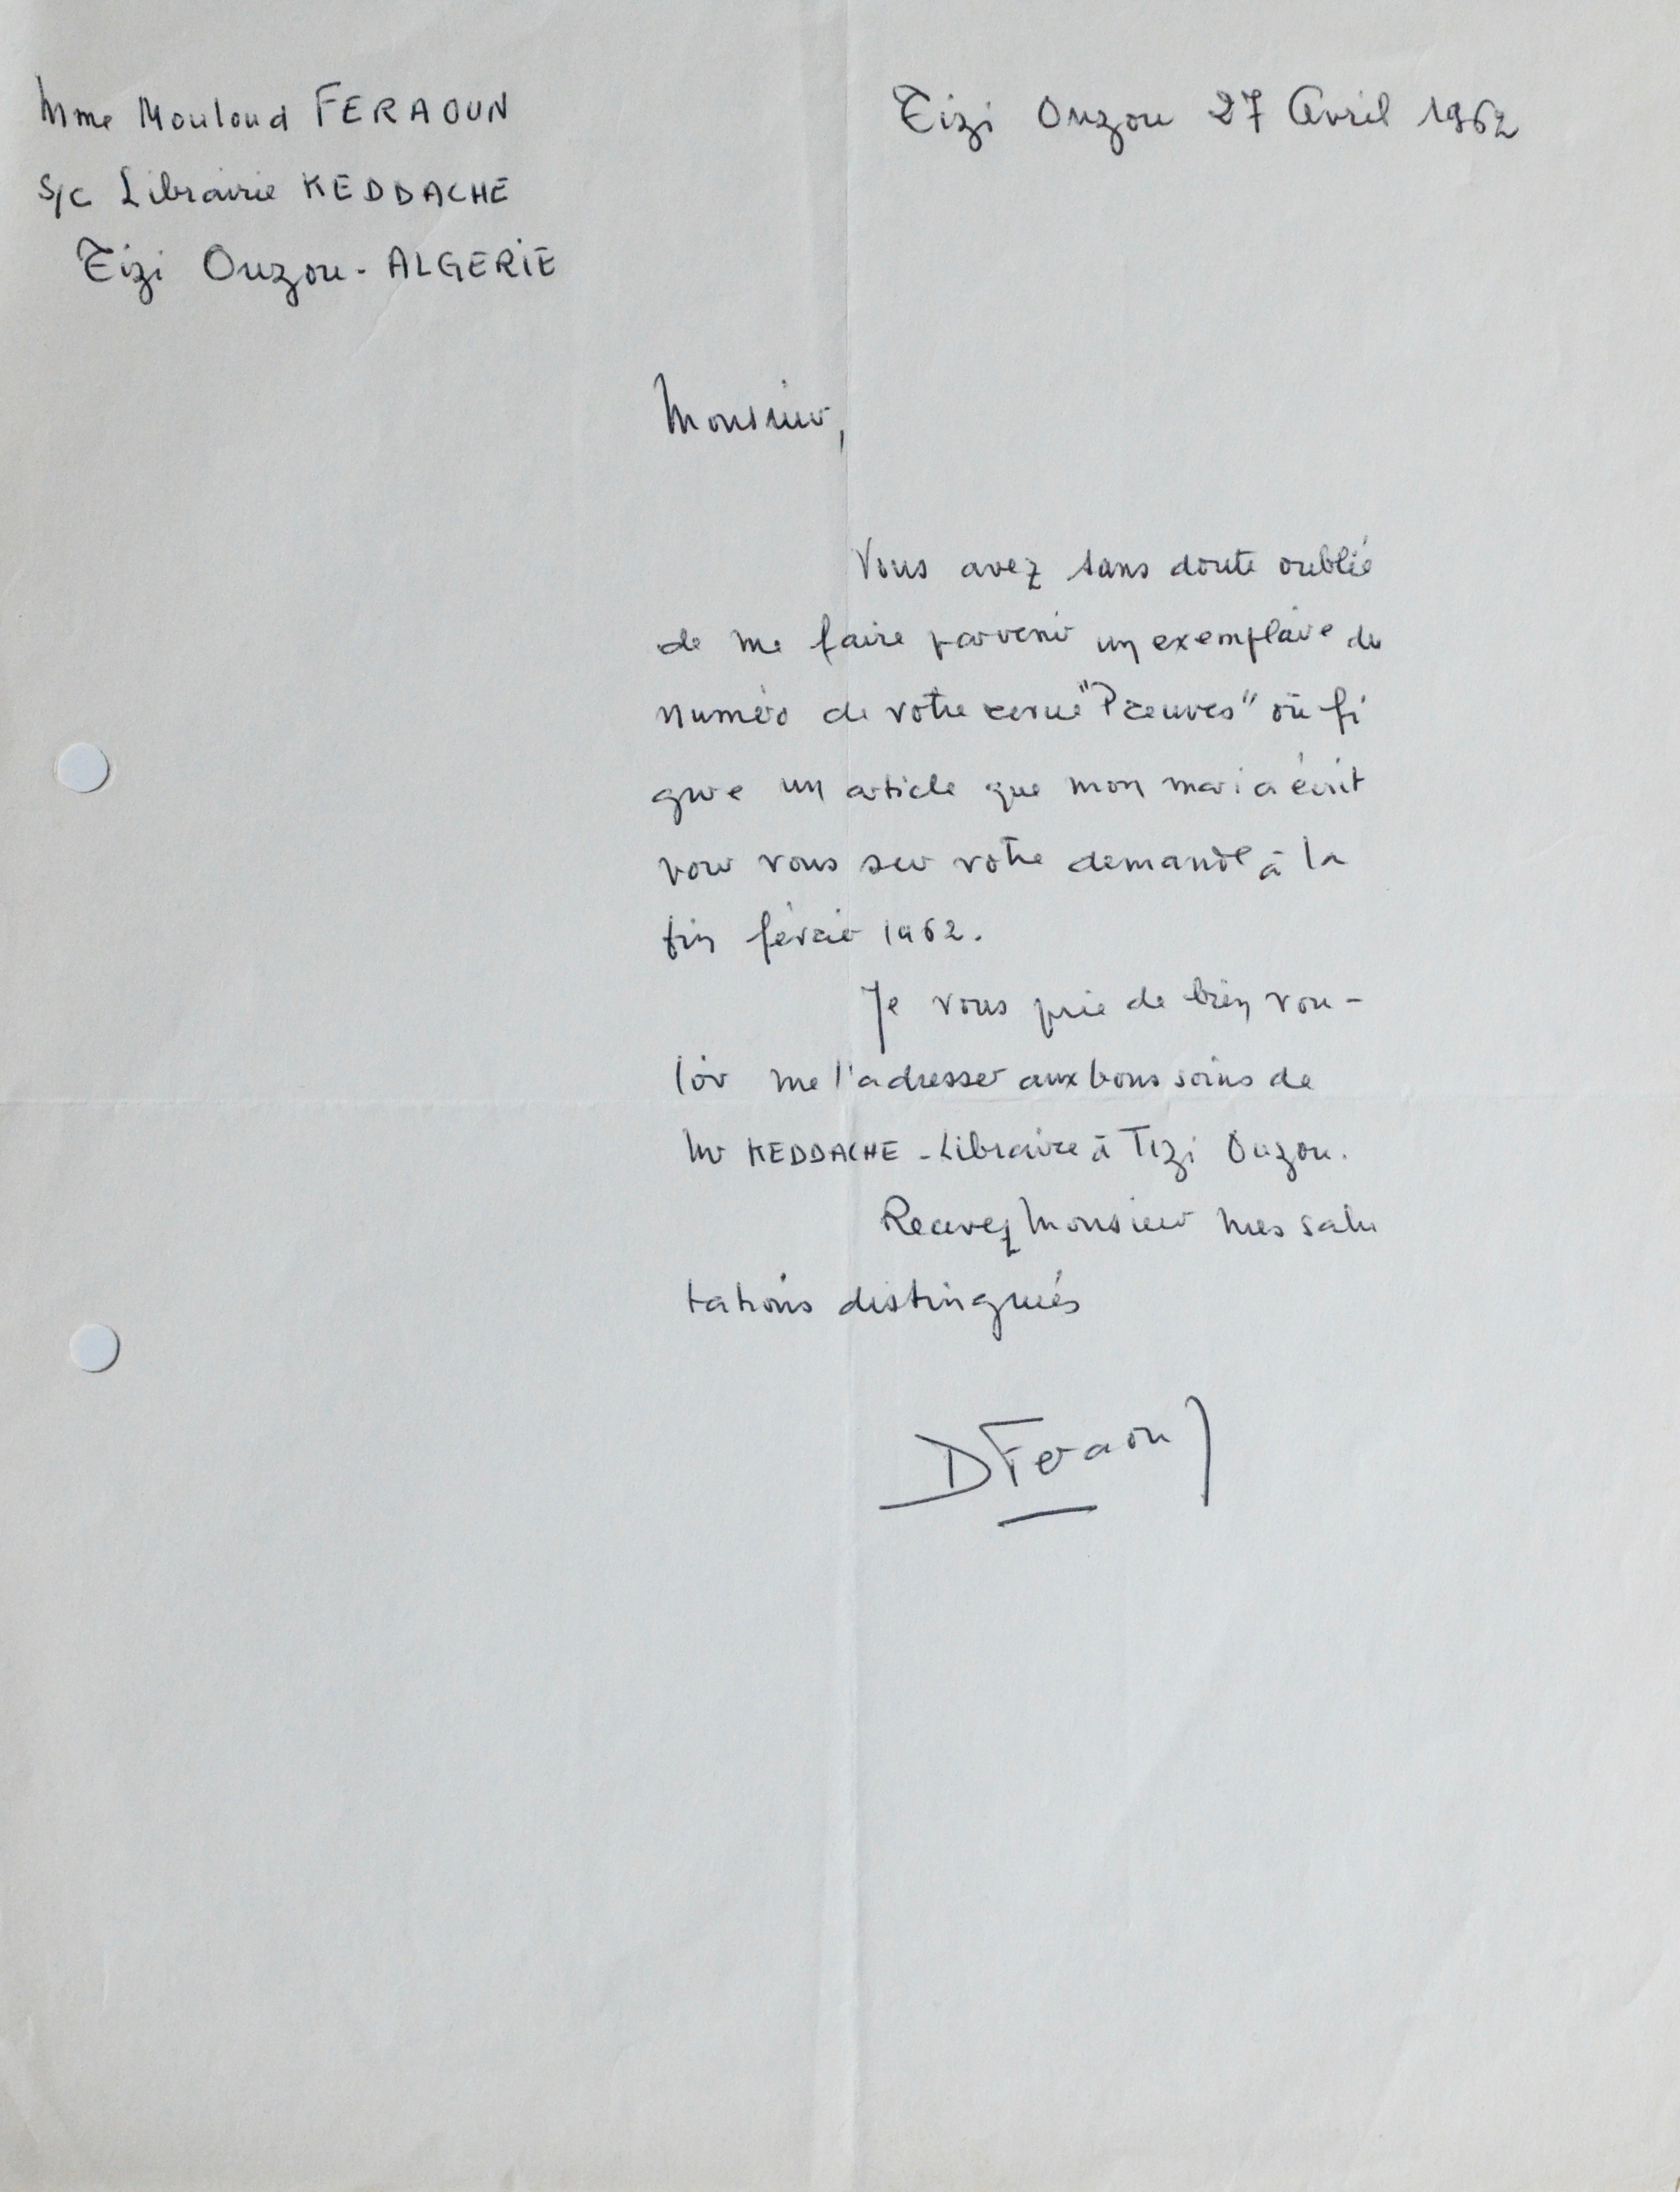 Mme Mouloud FERAOUN
S/C Librairie KEDDACHE
Tizi Ouzou - ALGERIE
Tizi Ouzou 27 Avril 1962
Monsieur,
Vous avez sans doute oublié
de me faire parvenir un exemplaire du
numéro de votre revue "Preuves" où fi
gure un article que mon mari a écrit
pour vous sur votre demande à la
fin février 1962.
Je vous prie de bien vou-
loir me l'adresser aux bons soins de
Mr KEDDACHE - Libraire à Tizi Ouzou.
Recevez Monsieur mes salu
tations distingués
DFeraoun